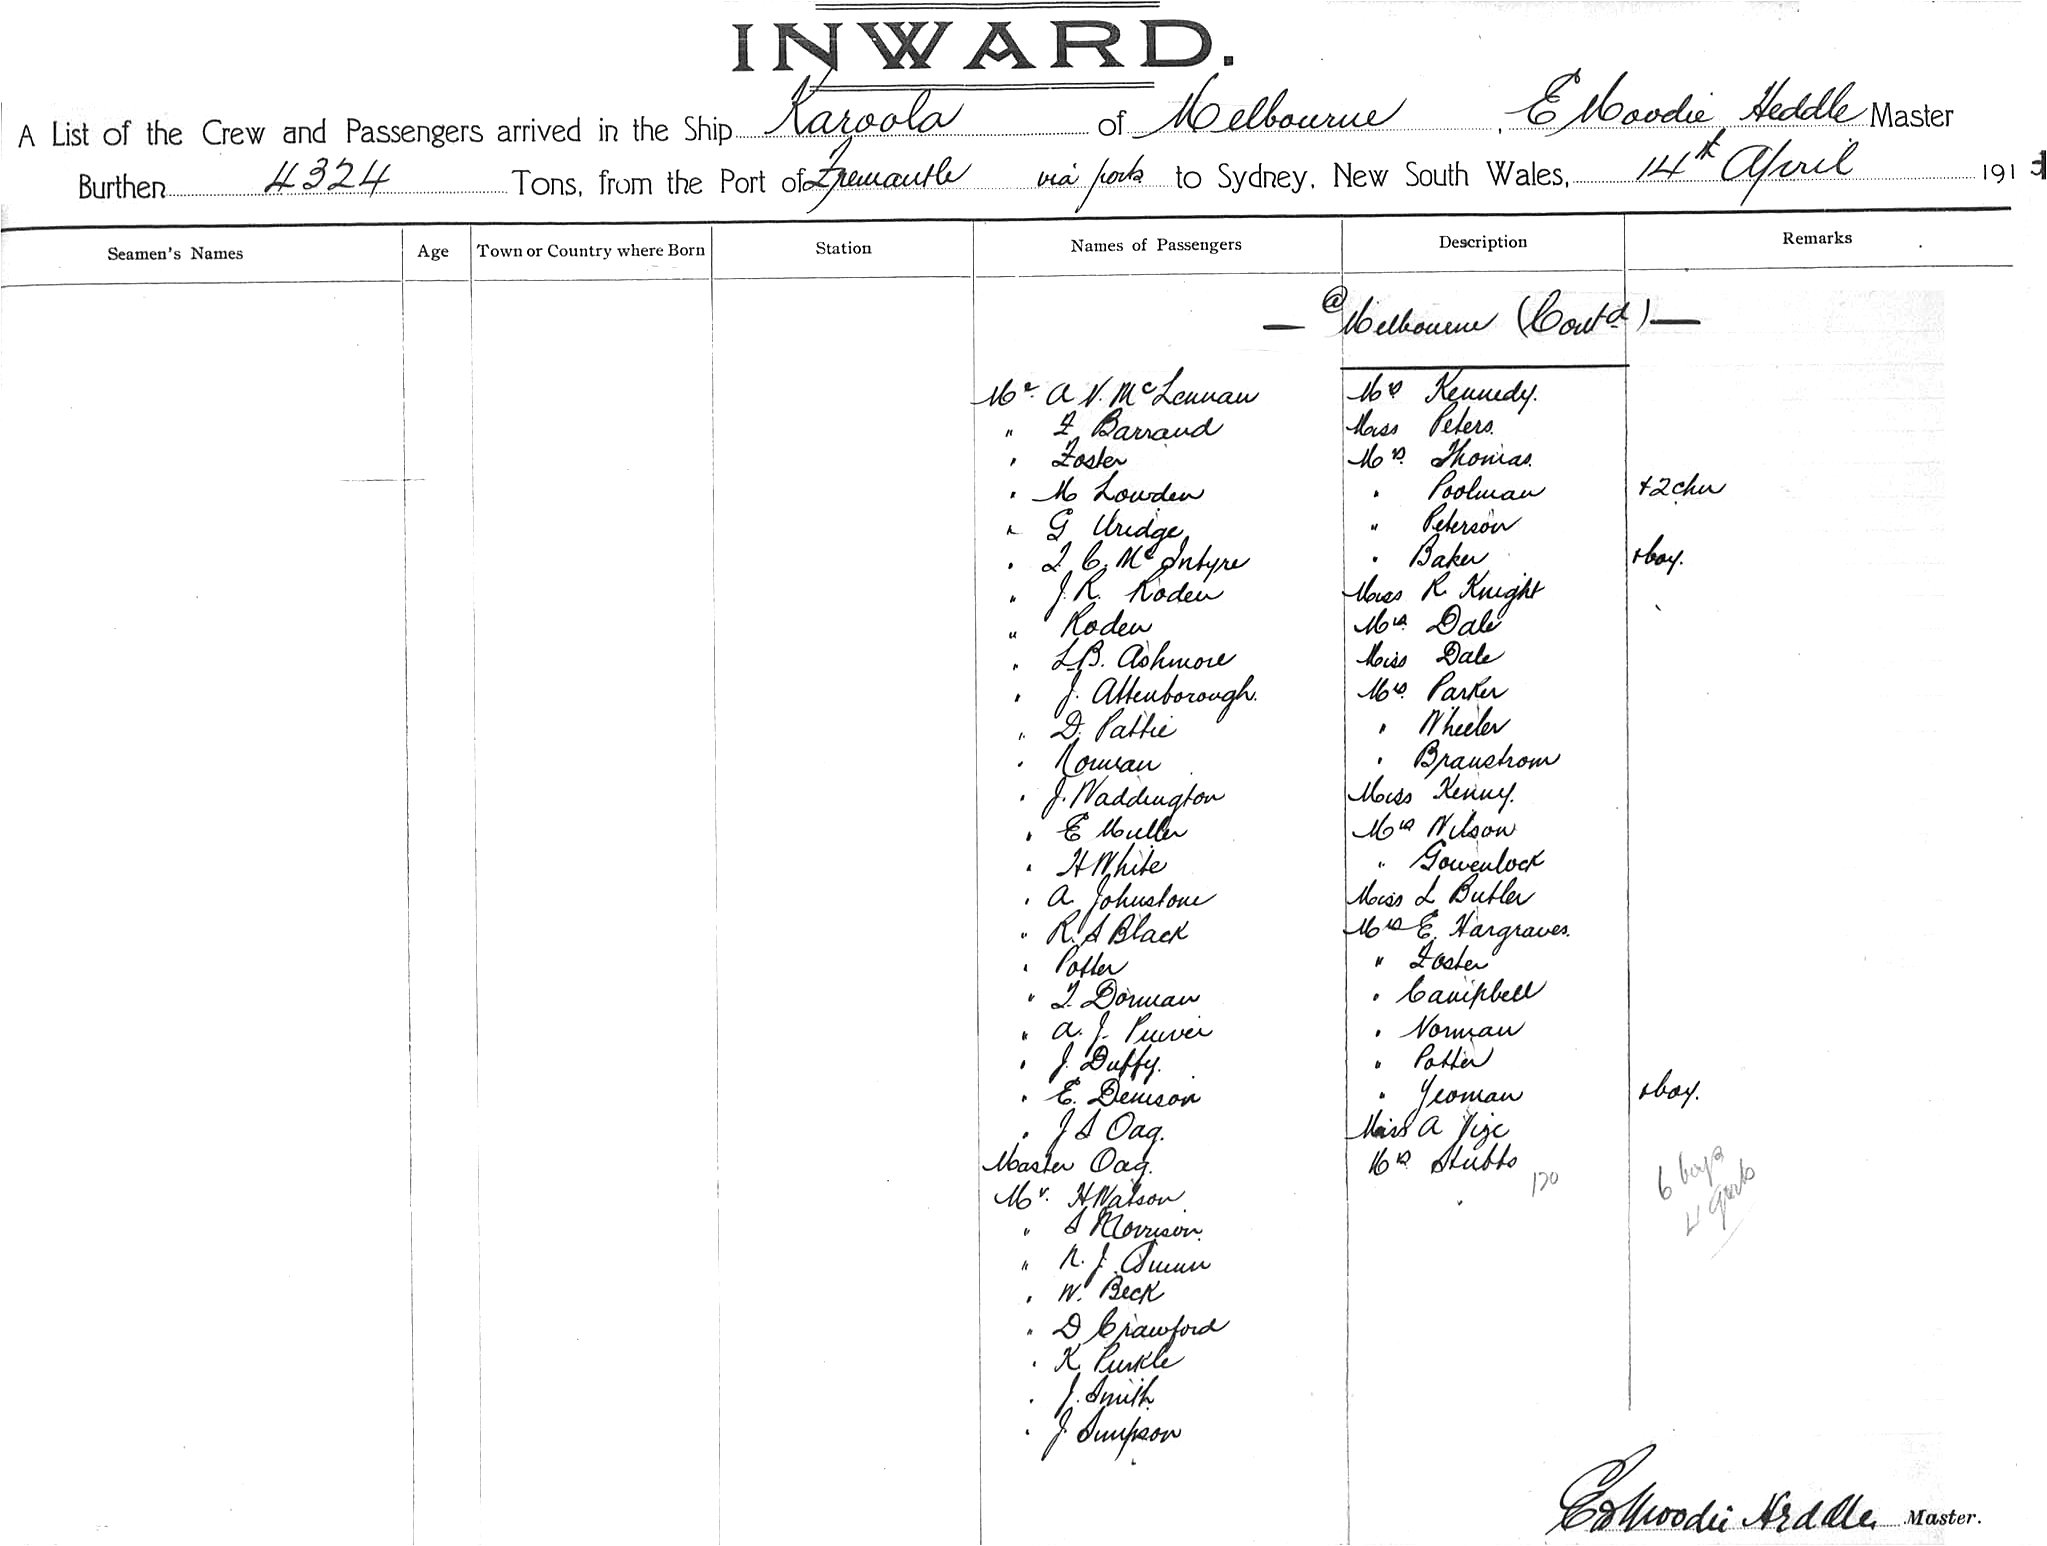 INWARD.
A List of the Crew and Passengers arrived in the Ship Karoola of Melbourne, E Moodie Heddle Master
Burthen 4324 Tons, from the Port of Fremantle via ports to Sydney, New South Wales, 14th April 1913
Seamen's Names Age Town or Country where Born Station Names of Passengers Description Remarks
— @ Melbourne (Contd) —
Mr. A N. McLennan Mrs Kennedy.
" F Barraud Miss Peters.
" Foster Mrs. Thomas.
" M Lowden " Poolman +2 chn
" G Uridge " Peterson
" F. C. McIntyre " Baker + boy.
" J. R. Roden Miss R Knight
" Roden Mrs Dale
" L.B. Ashmore Miss Dale
" J. Attenborough. Mrs. Parker
" D. Pattie " Wheeler
" Norman " Branstrom
" J. Waddington Miss Kenny.
" E Muller Mrs Wilson
" H White " Gowenlock
" A. Johnstone Miss L Butler
" R. S Black Mrs E. Hargraves.
" Potter " Foster
" T. Dorman " Campbell
" A. J. " Norman
" J. Duffy. " Potter
" E. Denison " Yeoman + boy.
" J S Oag. Miss A Vize
Master Oag. Mrs Stubbs
120
6 boys
4 girls
Mr. H Watson
" S Morrison.
" J.
" W. Beck
" D Crawford
" K. Purkle
" J. Smith.
" J Simpson
E Moodie Heddle Master.